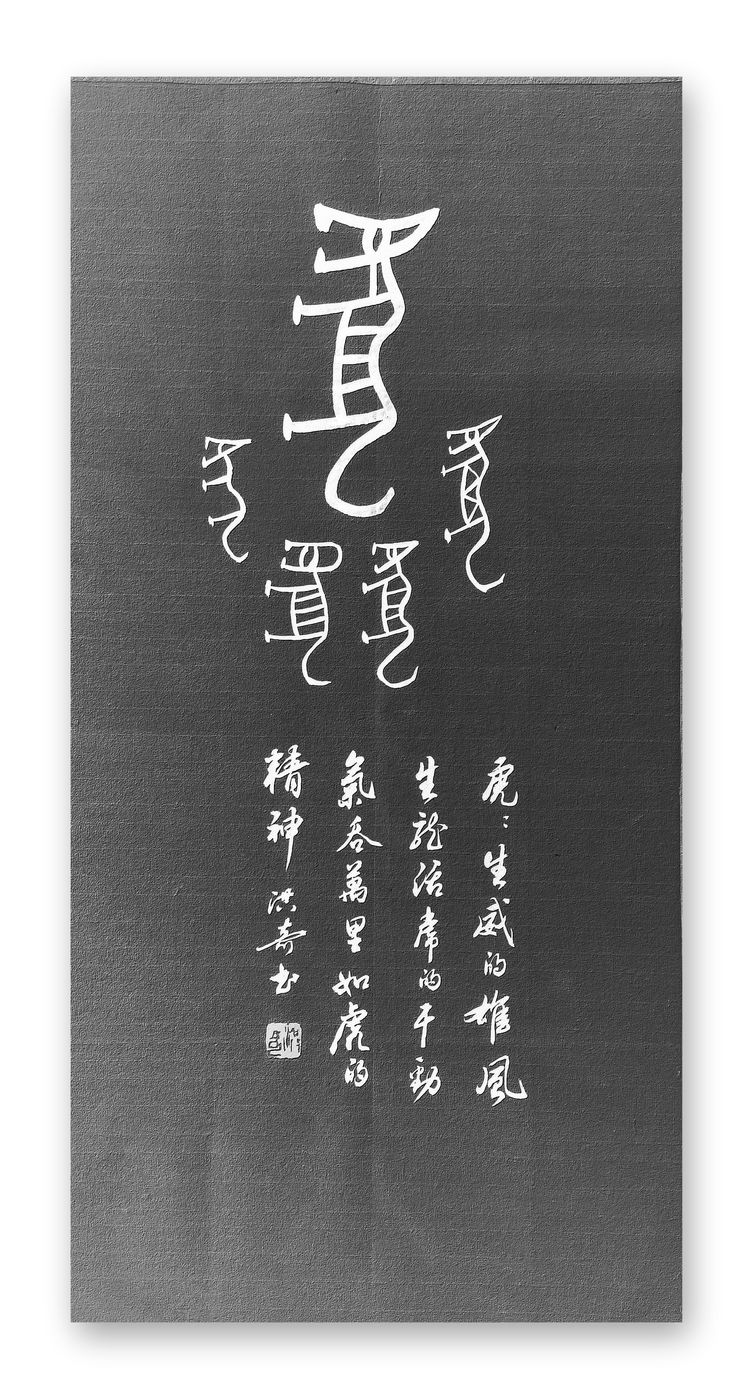 虎
虎 虎 虎 虎
虎〻生威的雄風
生龍活虎的干勁
氣吞萬里如虎的
精神 洪奇书